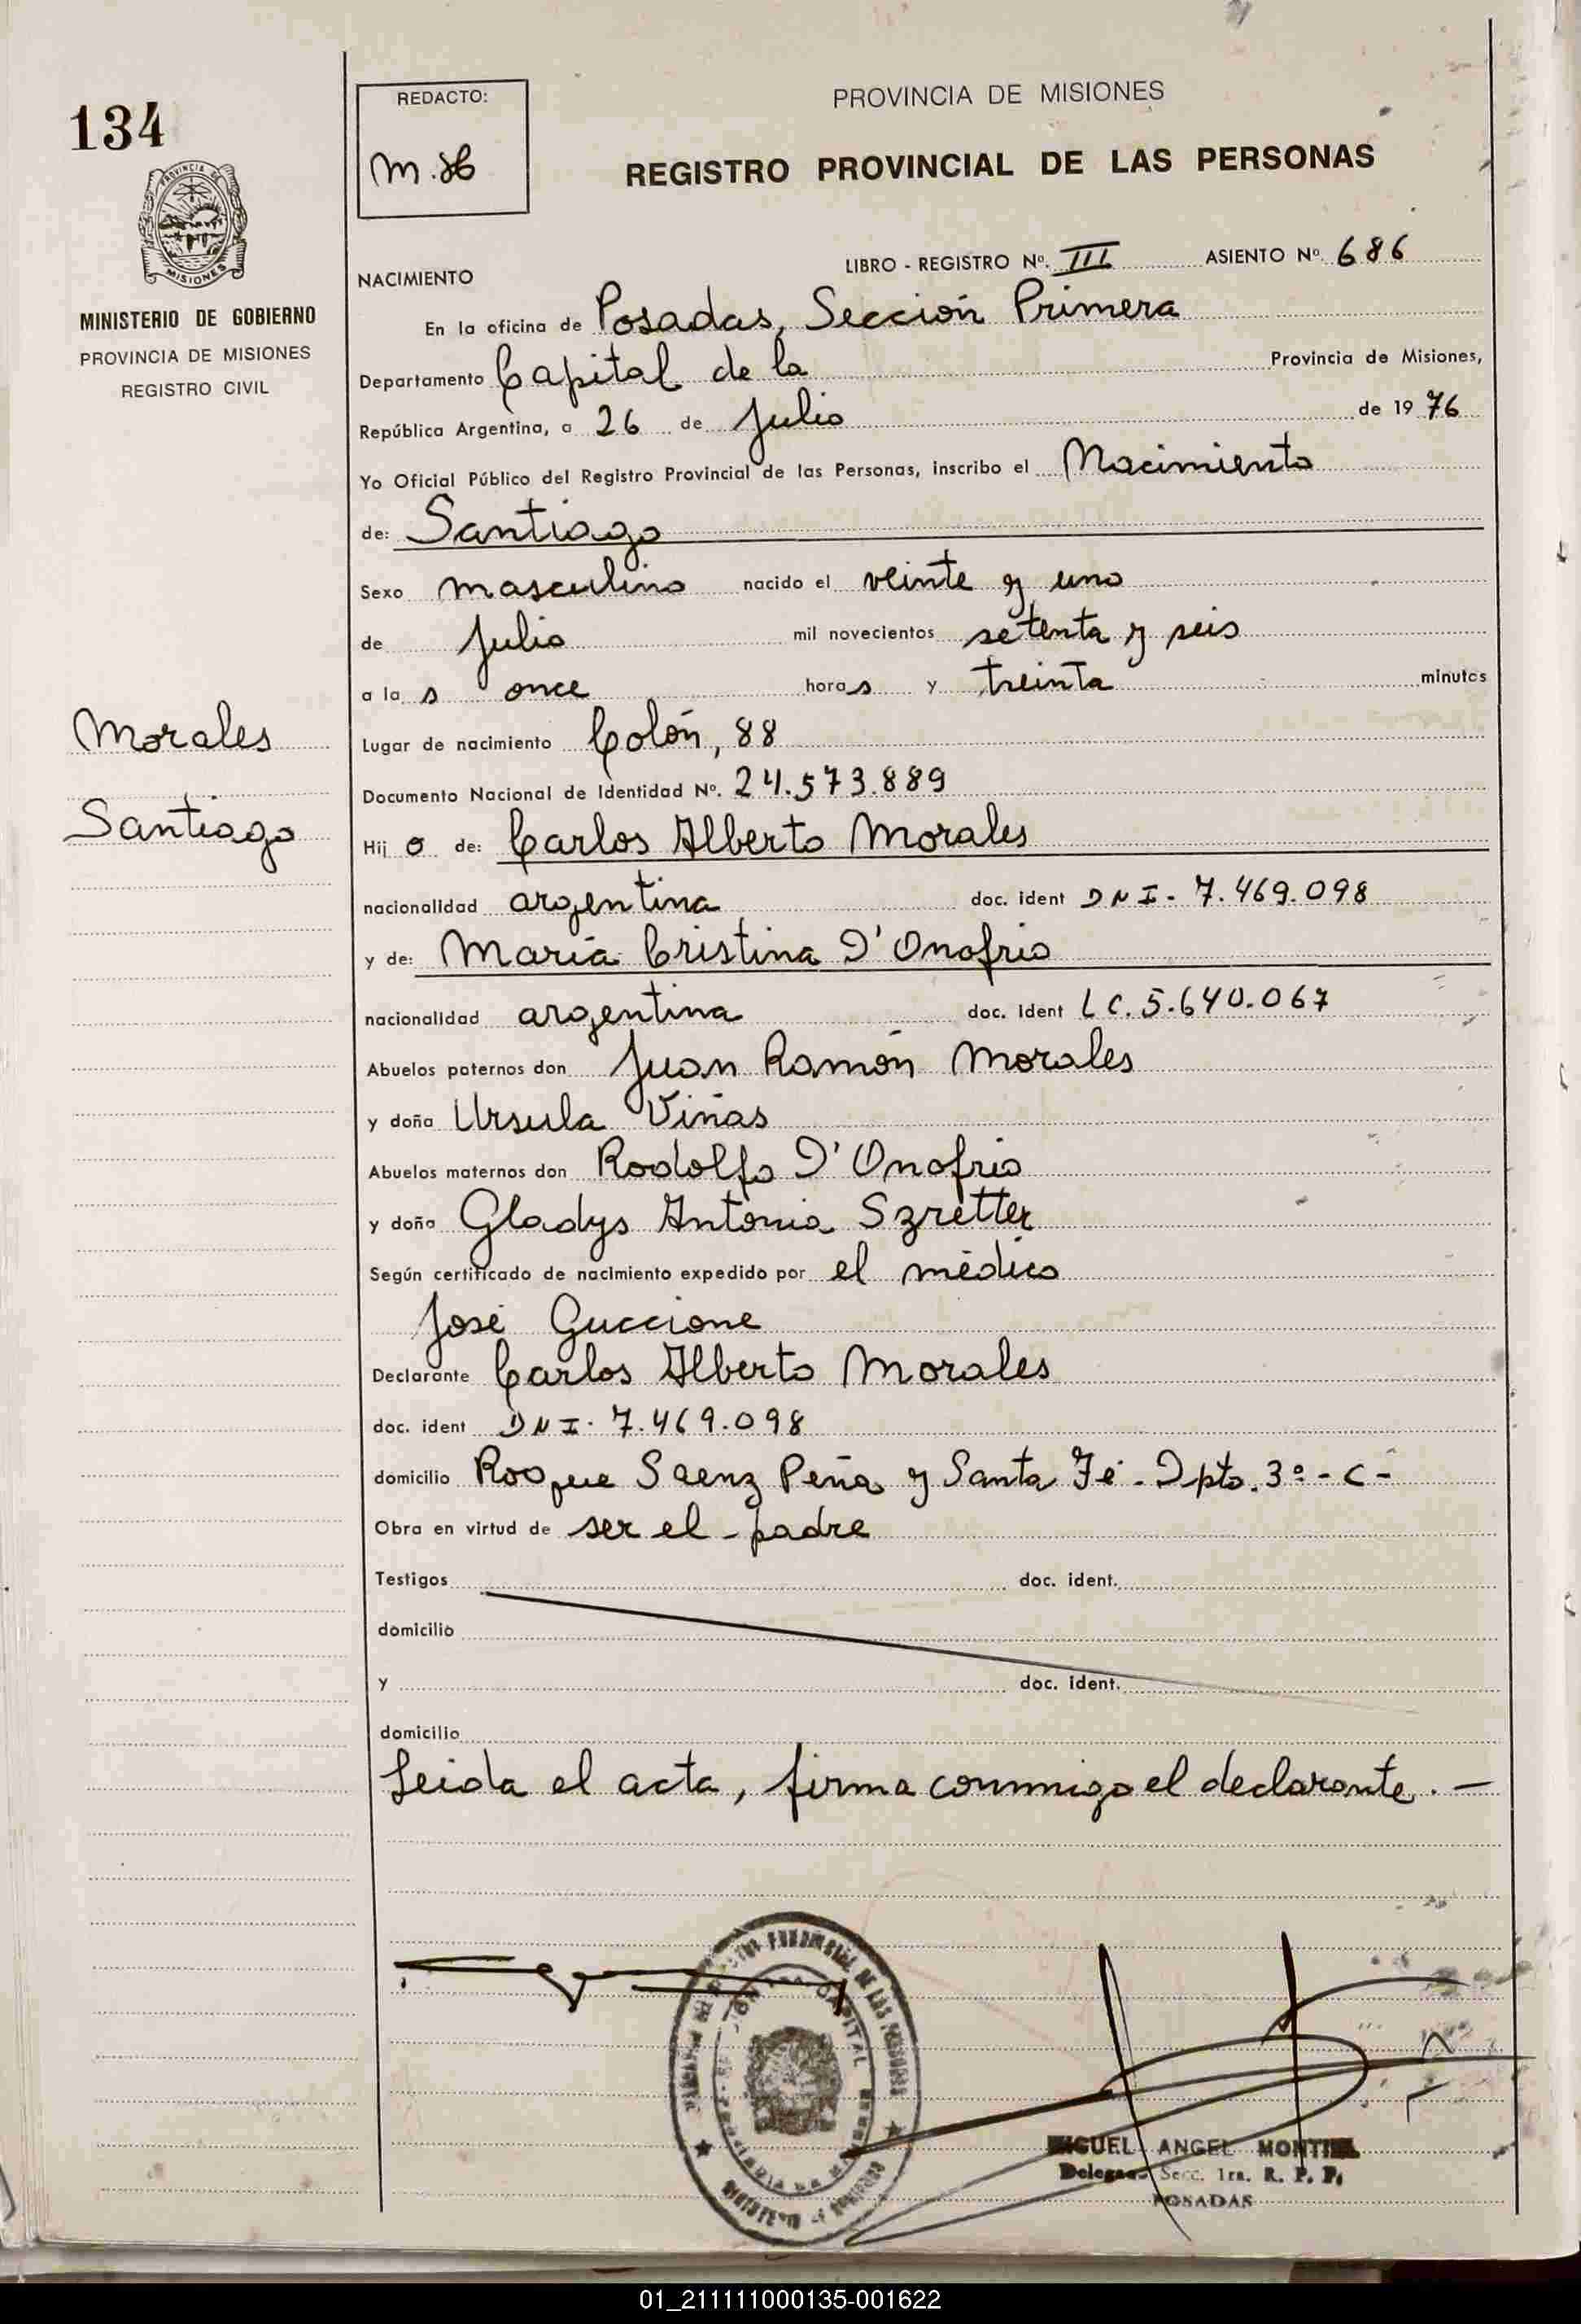 134
PROVINCIA DE MISIONES
MINISTERIO DE GOBIERNO
PROVINCIA DE MISIONES
REGISTRO CIVIL
Morales
Santiago
REDACTO:
PROVINCIA DE MISIONES
REGISTRO PROVINCIAL DE LAS PERSONAS
NACIMIENTO
LIBRO - REGISTRO Nº. III ASIENTO Nº. 686
En la oficina de Posadas, Sección Primera
Departamento Capital de la Provincia de Misiones,
República Argentina, a 26 de Julio de 1976
Yo Oficial Público del Registro Provincial de las Personas, inscribo el Nacimiento
de: Santiago
Sexo masculino nacido el veinte y uno
de Julio mil novecientos setenta y seis
a las once horas y treinta minutos
Lugar de nacimiento Colón, 88
Documento Nacional de Identidad Nº. 24.573.889
Hijo de: Carlos Alberto Morales
nacionalidad argentina doc. ident DNI- 7.469.098
y de: María Cristina D'Onofrio
nacionalidad argentina doc. ident LC. 5.640.067
Abuelos paternos don Juan Ramón Morales
y doña Ursula Viñas
Abuelos maternos don Rodolfo D'Onofrio
y doña Gladys Antonia Szretter
Según certificado de nacimiento expedido por el médico
José Guccione
Declarante Carlos Alberto Morales
doc. ident DNI- 7.469.098
domicilio Roque Saenz Peña y Santa Fé - Dpto. 3º - C -
Obra en virtud de ser el padre
Testigos doc. ident.
domicilio
y doc. ident.
domicilio
Leida el acta, firma conmigo el declarante. —
MIGUEL ANGEL
Delegado Secc. 1ra. R. P. P.
POSADAS
01_211111000135-001622